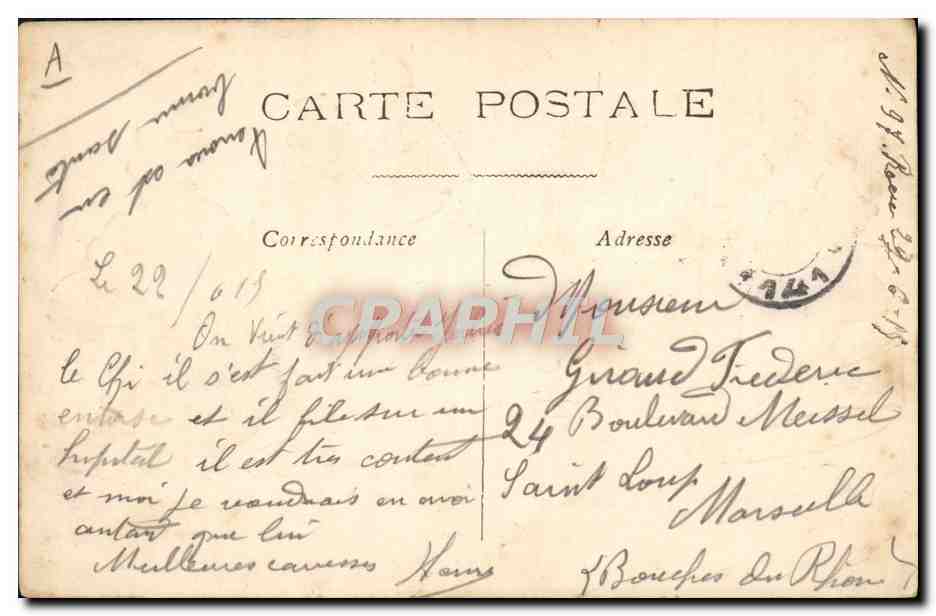 A
bonne santé
est en
CARTE POSTALE
N. 97. Recu 27-6-15
Correspondance
Adresse
Le 22/615
On vient d'
le Chi il s'est fait une bonne
entorse et il file sur un
hopital il est tres contant
et moi je voudrais en avoir
autant que lui
Meilleures caresses Henri
Monsieur
Giraud Frederic
24 Boulevard Meissel
Saint Loup
Marseille
(Bouches du Rhone)
141
CARAPHIL